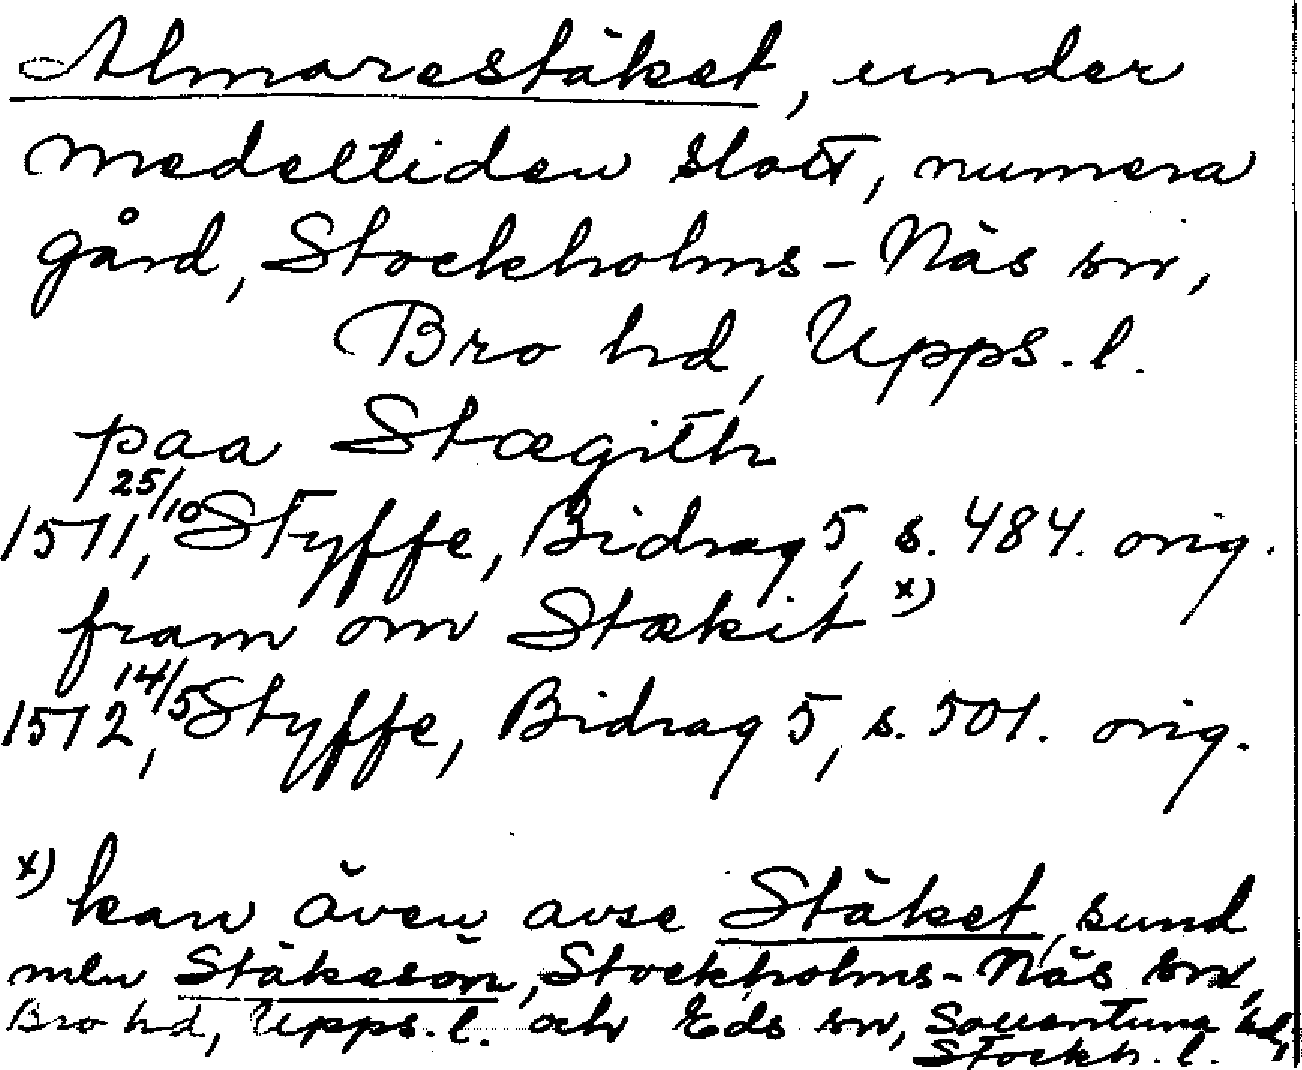 Almarestäket, under
medeltiden slott, numera
gård, Stockholms-Näs sn,
Bro hd, Upps. l.
paa Stægith
1511 25/10, Styffe, Bidrag 5, s. 484. orig.
fram om Stækit x)
1512 14/5, Styffe, Bidrag 5, s. 501. orig.
x) kan även avse Stäket, sund
mln Stäkesön, Stockholms-Näs sn,
Bro hd, Upps. l. och Eds sn, Sollentuna hd,
Stockh. l.